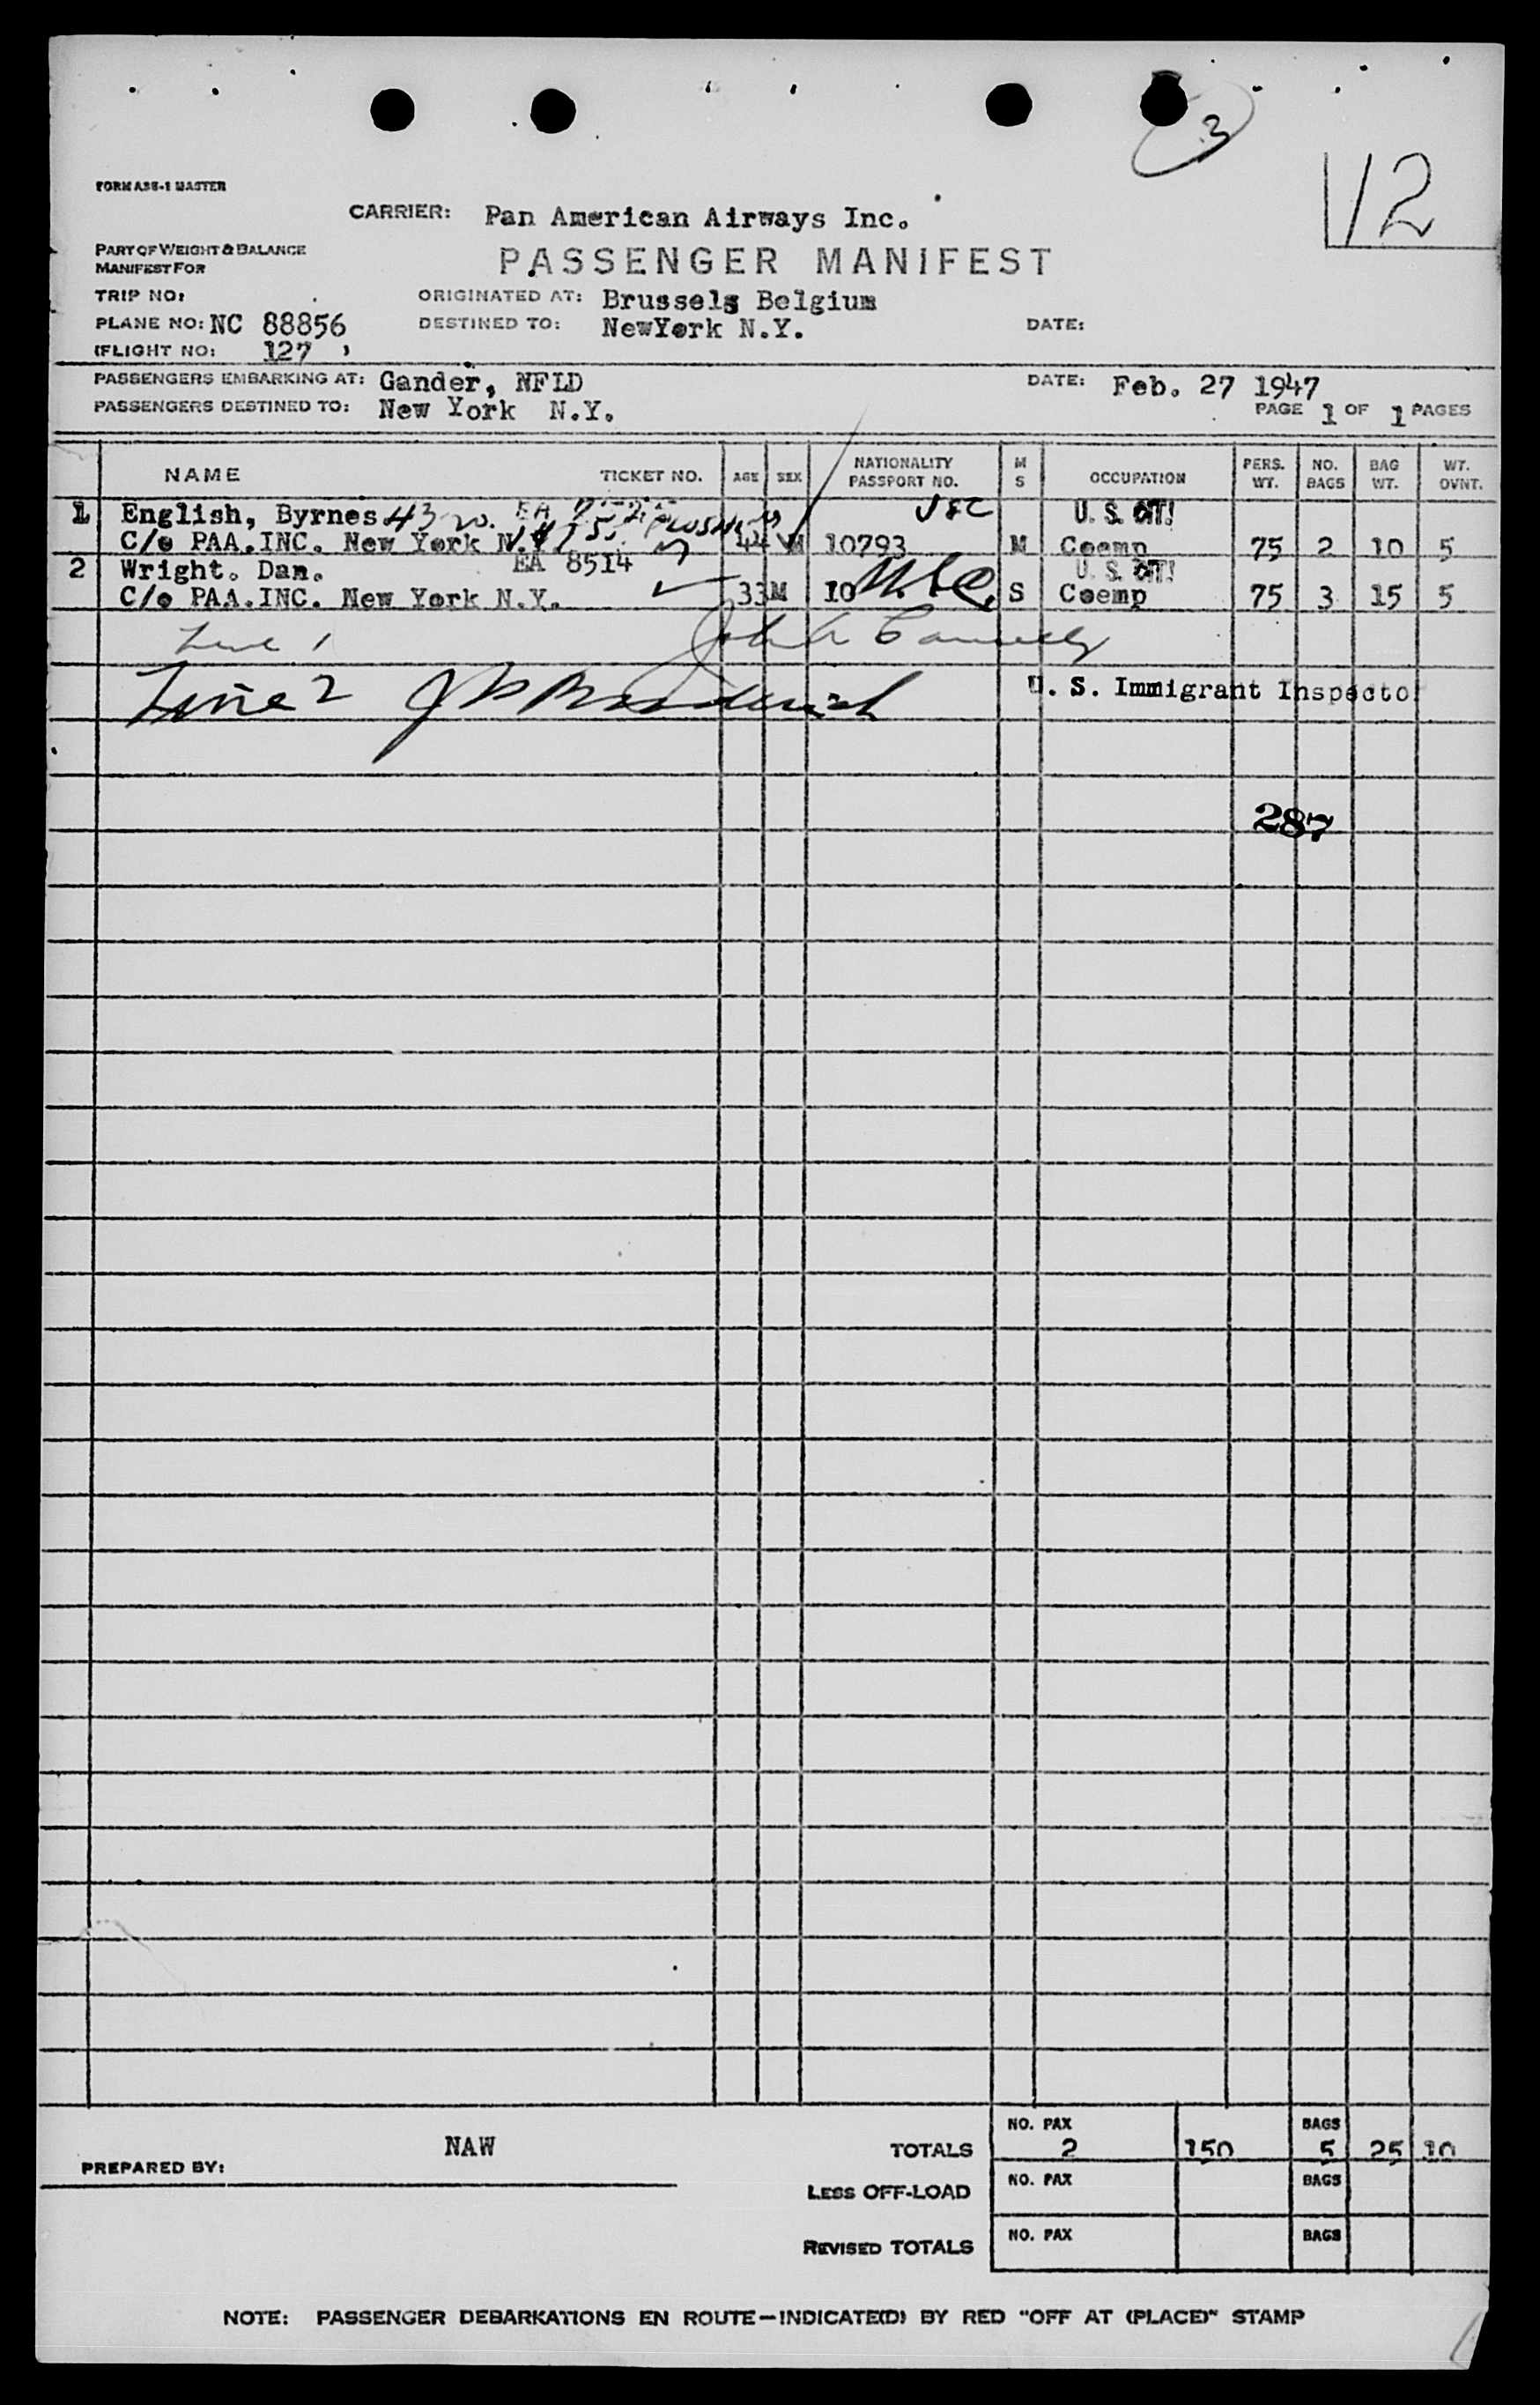 3
12
FORM ASS-1 MASTER
CARRIER: Pan American Airways Inc.
PART OF WEIGHT & BALANCE
MANIFEST FOR
PASSENGER MANIFEST
TRIP NO:
ORIGINATED AT: Brussels Belgium
PLANE NO: NC 88856
DESTINED TO: NewYork N.Y.
DATE:
(FLIGHT NO: 127 )
PASSENGERS EMBARKING AT: Gander, NFLD
DATE: Feb. 27 1947
PASSENGERS DESTINED TO: New York N.Y.
PAGE 1 OF 1 PAGES
NAME TICKET NO. AGE SEX NATIONALITY PASSPORT NO. M S OCCUPATION PERS. WT. NO. BAGS BAG WT. WT. OVNT.
1 English, Byrnes 43 EA USC U. S. CIT!
C/o PAA.INC. New York 44 M 10793 M Coemp 75 2 10 5
2 Wright. Dan. EA 8514 U. S. CIT!
C/o PAA.INC. New York N.Y. 33 M 10 S Coemp 75 3 15 5
Line 1
Line 2
U. S. Immigrant Inspector
287
PREPARED BY: NAW
TOTALS NO. PAX 2 150 BAGS 5 25 10
LESS OFF-LOAD NO. PAX BAGS
REVISED TOTALS NO. PAX BAGS
NOTE: PASSENGER DEBARKATIONS EN ROUTE—INDICATE(D) BY RED "OFF AT (PLACE)" STAMP